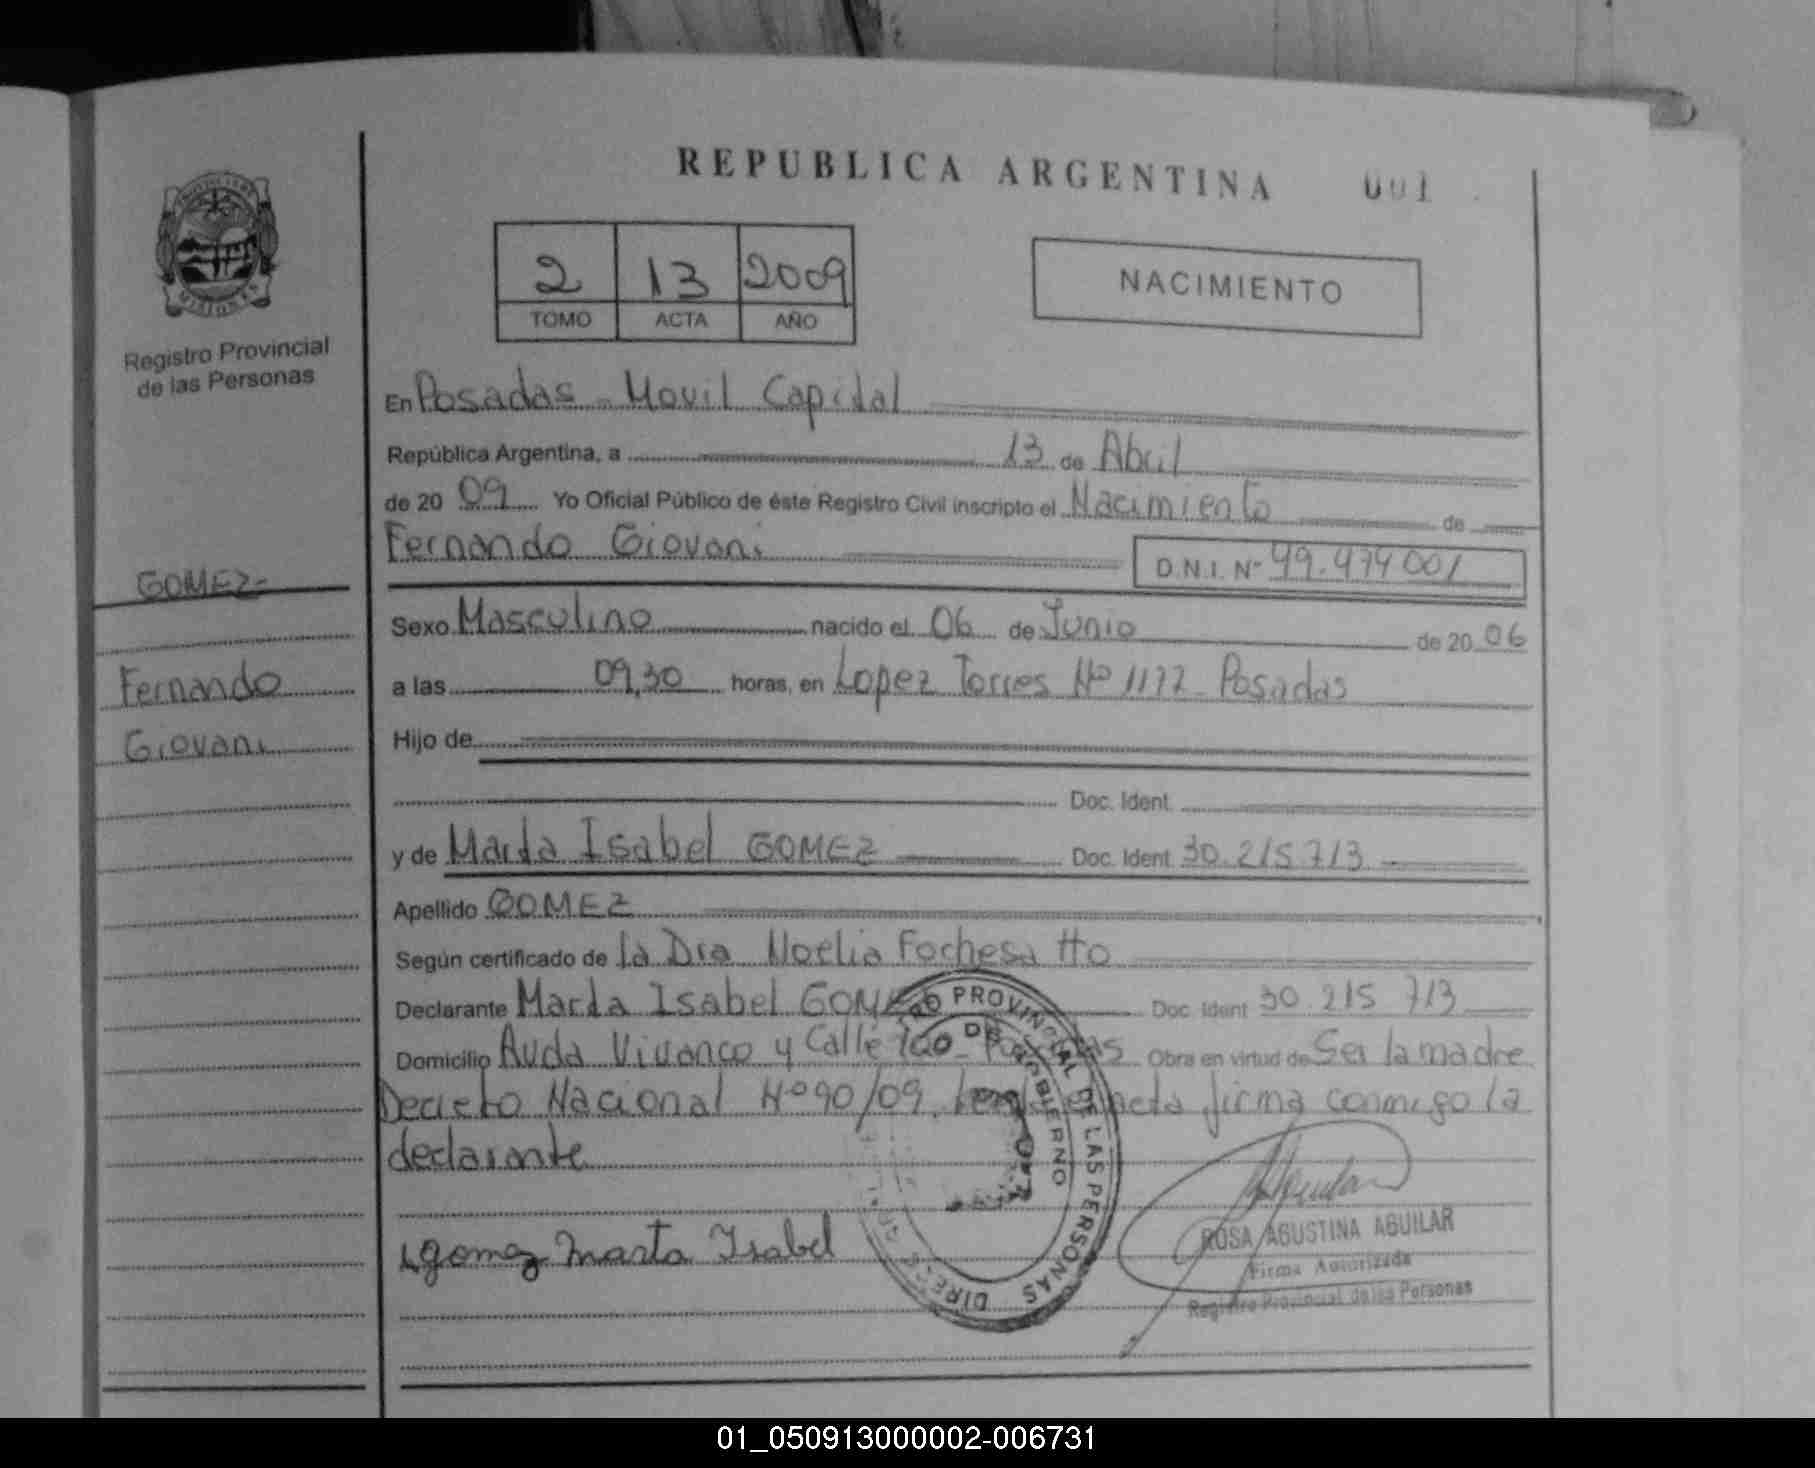 REPUBLICA ARGENTINA 001
PROVINCIA DE
MISIONES
Registro Provincial
de las Personas
2 13 2009
TOMO ACTA AÑO
NACIMIENTO
En Posadas - Movil Capital
República Argentina, a 13 de Abril
de 20 09 Yo Oficial Público de éste Registro Civil inscripto el Nacimiento de
Fernando Giovani
D.N.I. Nº 49.474001
GOMEZ-
Fernando
Giovani
Sexo Masculino nacido el 06 de Junio de 20 06
a las 09,30 horas, en Lopez Torres Nº 1177 - Posadas
Hijo de
Doc. Ident.
y de Marta Isabel GOMEZ Doc. Ident. 30.215.713
Apellido GOMEZ
Según certificado de la Dra Noelia Fochesatto
Declarante Marta Isabel GOMEZ Doc. Ident. 30.215 713
Domicilio Avda Vivanco y Calle 160 - Posadas Obra en virtud de Ser la madre
Decreto Nacional Nº 90/09. acta firma conmigo la
declarante
Gomez Marta Isabel
PROVINCIAL DE LAS PERSONAS
DE GOBIERNO
ROSA AGUSTINA AGUILAR
Firma Autorizada
Registro Provincial de las Personas
01_050913000002-006731